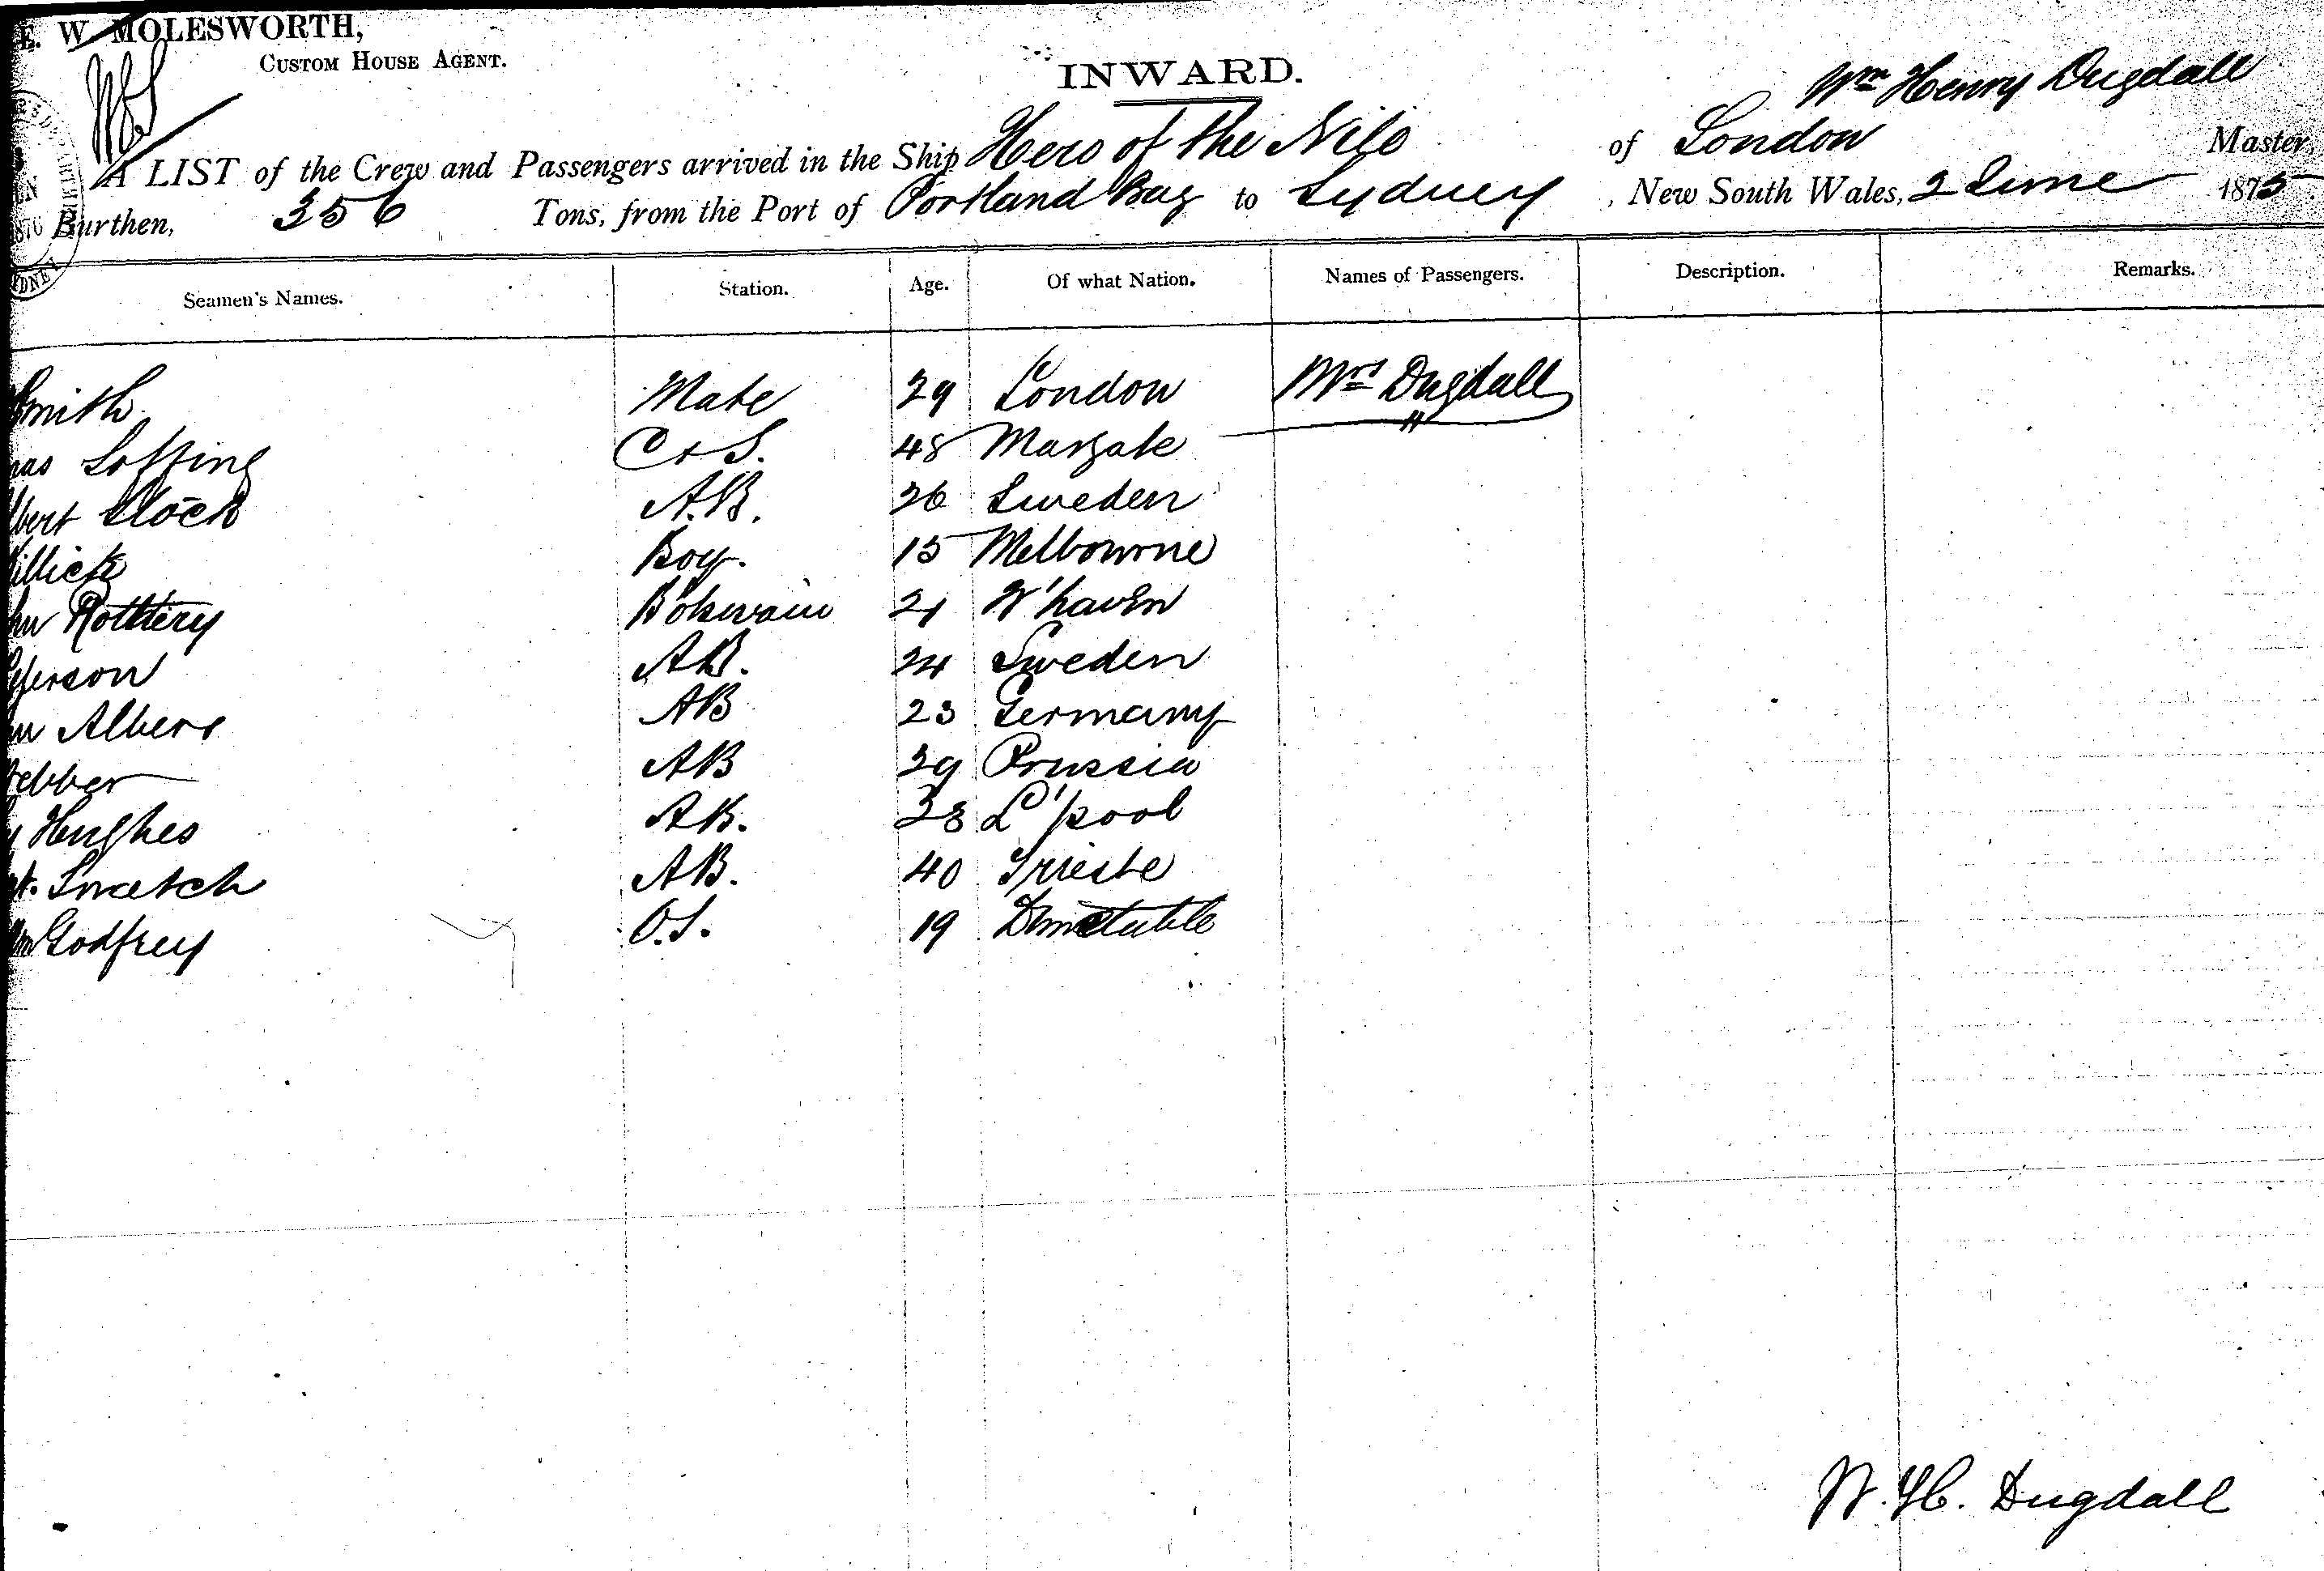 E. W. MOLESWORTH,
CUSTOM HOUSE AGENT.
INWARD.
Wm Henry Dugdall
A LIST of the Crew and Passengers arrived in the Ship Hero of the Nile of London Master,
Burthen, 356 Tons, from the Port of Portland Bay to Sydney, New South Wales, 2 June 1875
Seamen's Names. Station. Age. Of what Nation. Names of Passengers. Description. Remarks.
Smith Mate 29 London Mrs Dugdall
C & S. 48 Margate
A.B. 26 Sweden
Boy. 15 Melbourne
Rothery B'otswain 21 W'haven
AB. 24 Sweden
Albers AB 23 Germany
Webber AB 29 Prussia
Hughes AB. 38 L'pool
AB. 40 Trieste
Wm Godfrey O.S. 19
W. H. Dugdall